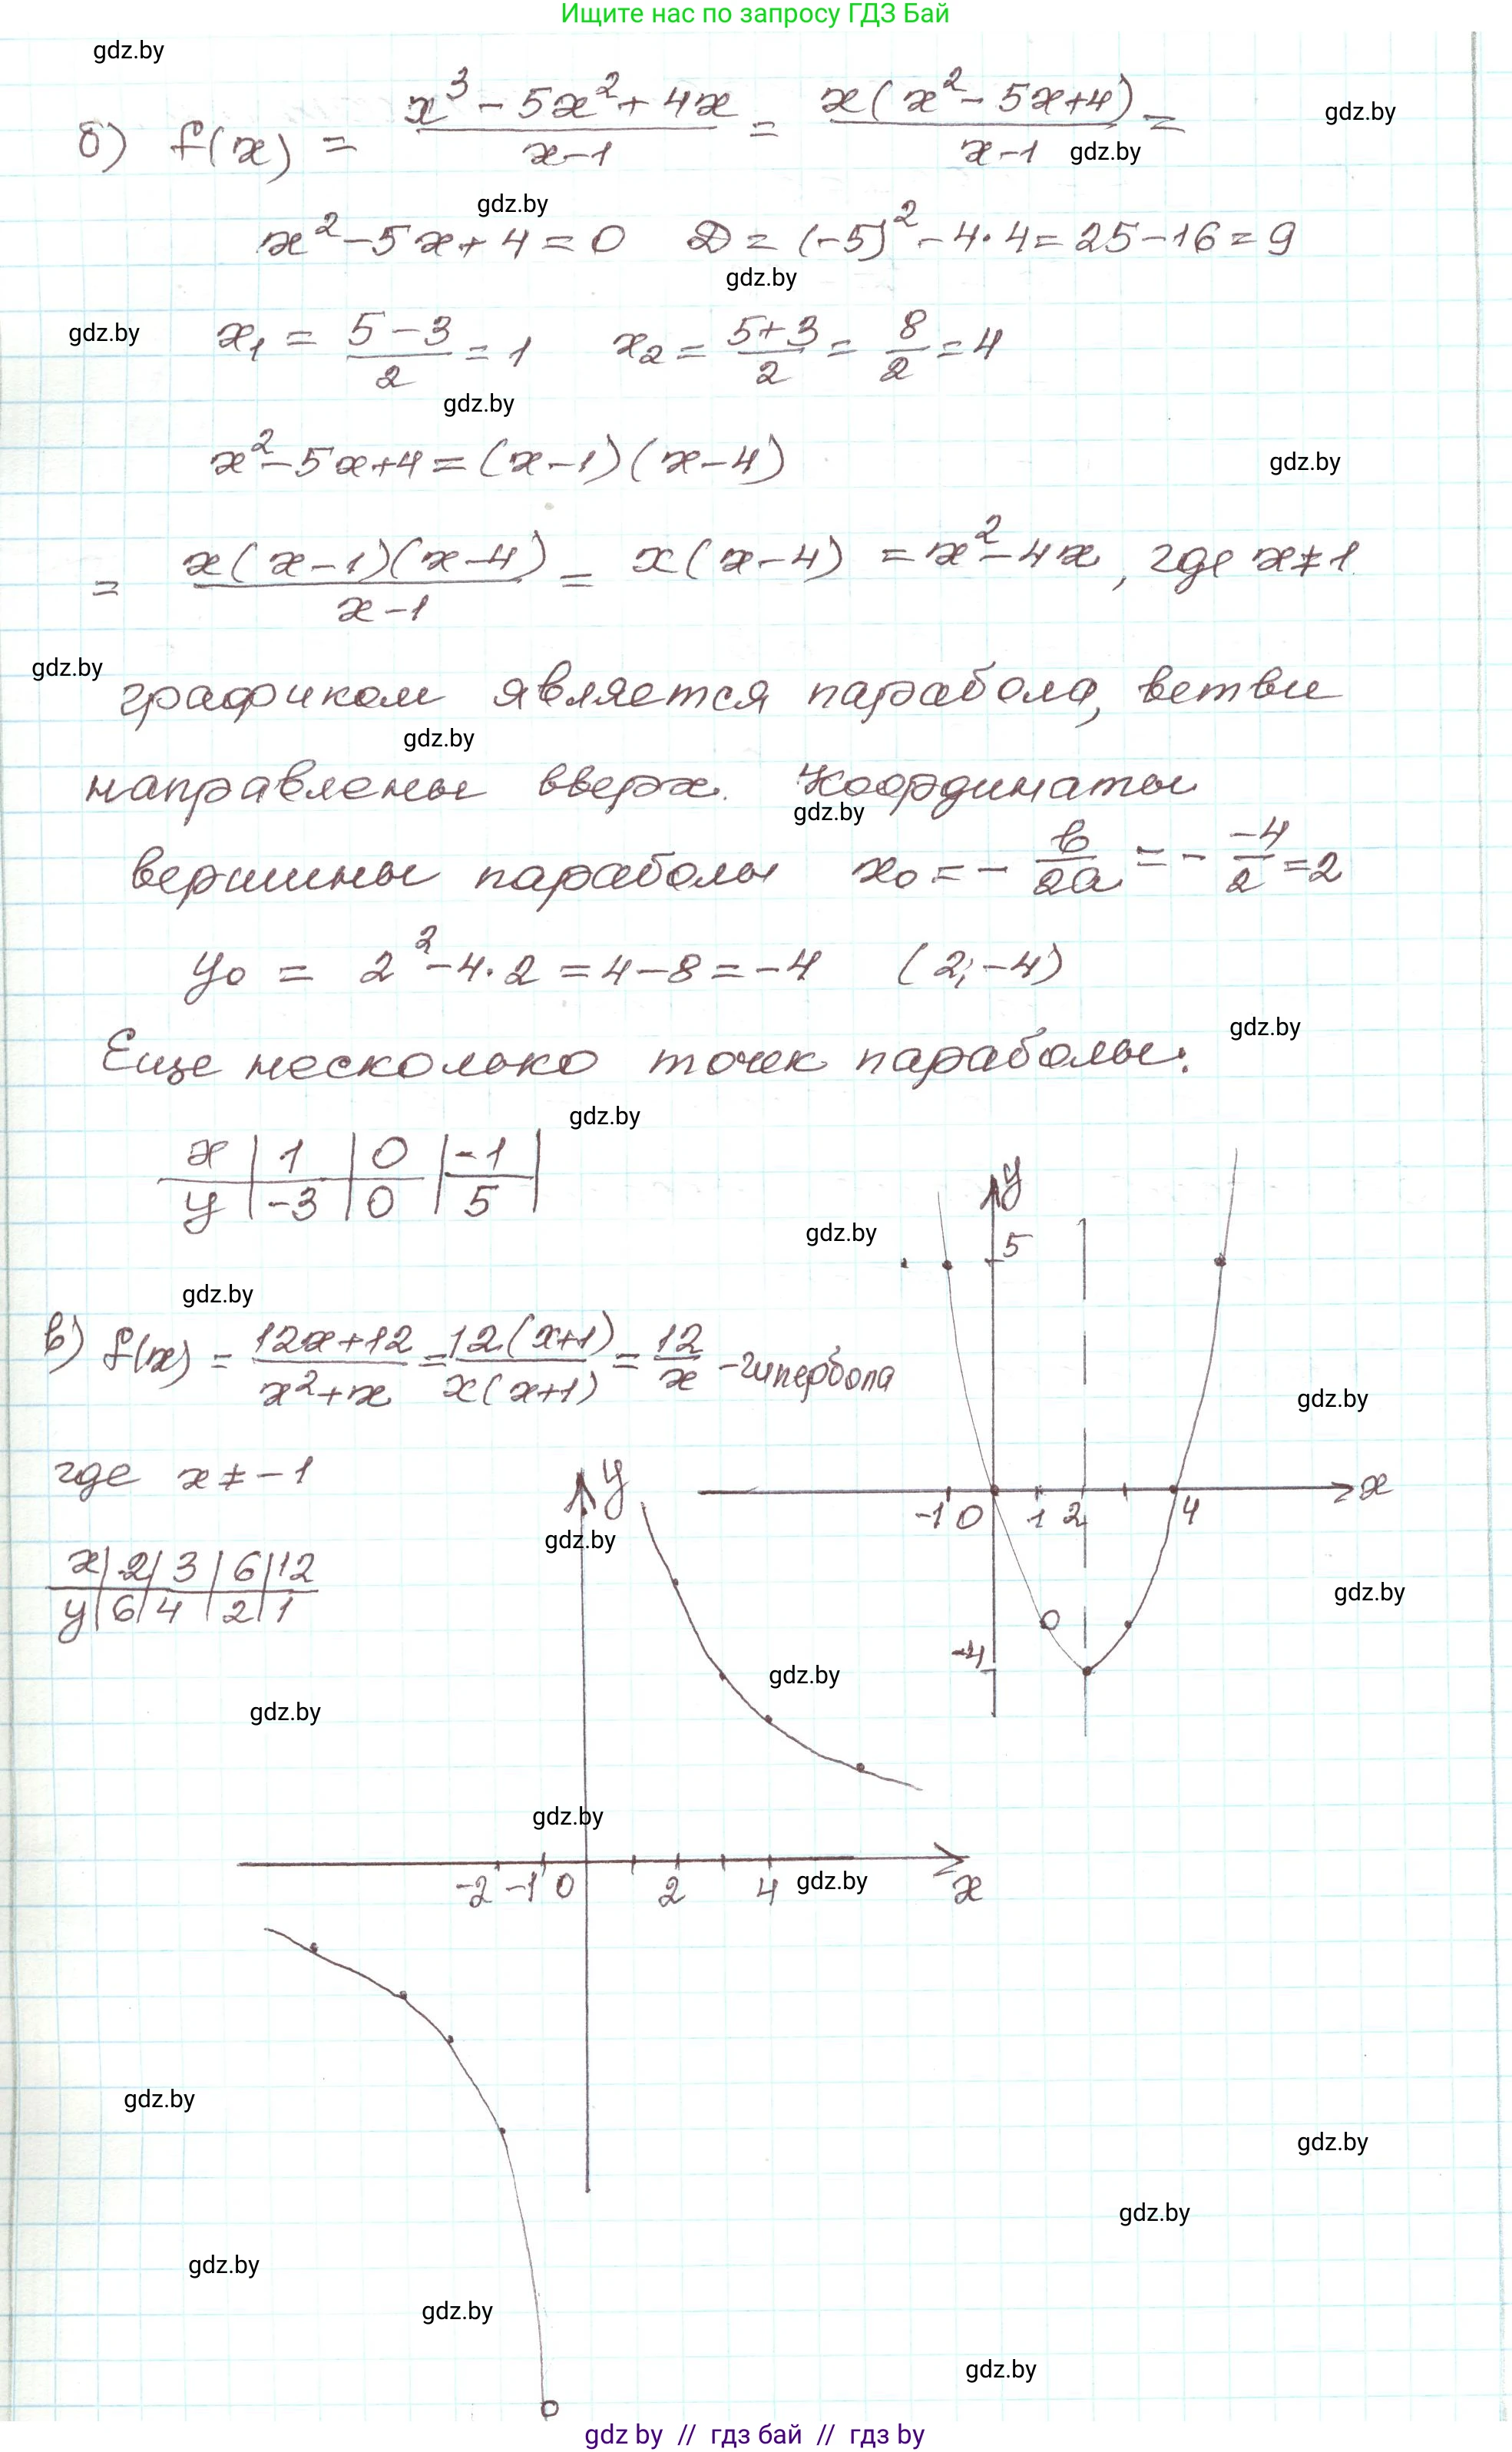 Ищите нас по запросу ГДЗ Бай
gdz.by
б) f(x) = (x³ - 5x² + 4x)/(x-1) = x(x² - 5x+4)/(x-1) =
gdz.by
gdz.by
gdz.by
x² - 5x + 4 = 0 D = (-5)² - 4·4 = 25-16 = 9
gdz.by
gdz.by
x₁ = (5-3)/2 = 1 x₂ = (5+3)/2 = 8/2 = 4
gdz.by
x² - 5x+4 = (x-1)(x-4)
gdz.by
= x(x-1)(x-4)/(x-1) = x(x-4) = x² - 4x, где x≠1
gdz.by
графиком является парабола, ветви
gdz.by
направлены вверх. Координаты
gdz.by
вершины параболы x₀ = - b/2a = - -4/2 = 2
y₀ = 2² - 4·2 = 4-8 = -4 (2; -4)
gdz.by
Еще несколько точек параболы:
gdz.by
x | 1 | 0 | -1 |
y | -3 | 0 | 5 |
y
gdz.by
5
gdz.by
в) f(x) = (12x+12)/(x²+x) = 12(x+1)/(x(x+1)) = 12/x - гипербола
gdz.by
где x ≠ -1
y
x
-1 0 1 2 4
gdz.by
x | 2 | 3 | 6 | 12
y | 6 | 4 | 2 | 1
gdz.by
-4
gdz.by
gdz.by
gdz.by
-2 -1 0 2 4
gdz.by
x
gdz.by
gdz.by
gdz.by
gdz.by
gdz.by
gdz.by
gdz by // гдз бай // гдз by